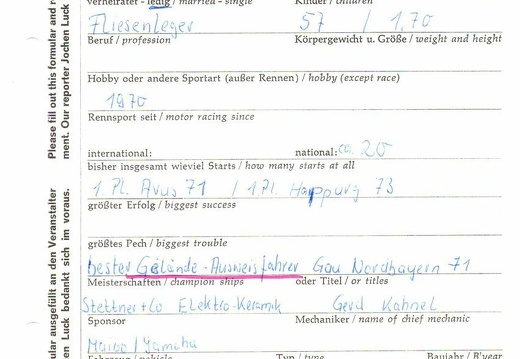 verheiratet - ledig / married - single
Kinder / children
Fliesenleger
57 / 1,70
Beruf / profession
Körpergewicht u. Größe / weight and height
Hobby oder andere Sportart (außer Rennen) / hobby (except race)
1970
Rennsport seit / motor racing since
international:
national: ca. 20
bisher insgesamt wieviel Starts / how many starts at all
1. Pl. Avus 71 / 1. Pl. Happurg 73
größter Erfolg / biggest success
größtes Pech / biggest trouble
bester Gelände-Ausweisfahrer Gau Nordbayern 71
Meisterschaften / champion ships
oder Titel / or titles
Stettner + Co Elektro-Keramik
Gerd Kohnel
Sponsor
Mechaniker / name of chief mechanic
Maico / Yamaha
Fahrzeug / vehicle
Typ / type
Baujahr / B'year
Please fill out this formular and
ment. Our reporter Jochen Luck
ular ausgefüllt an den Veranstalter
en Luck bedankt sich im voraus.